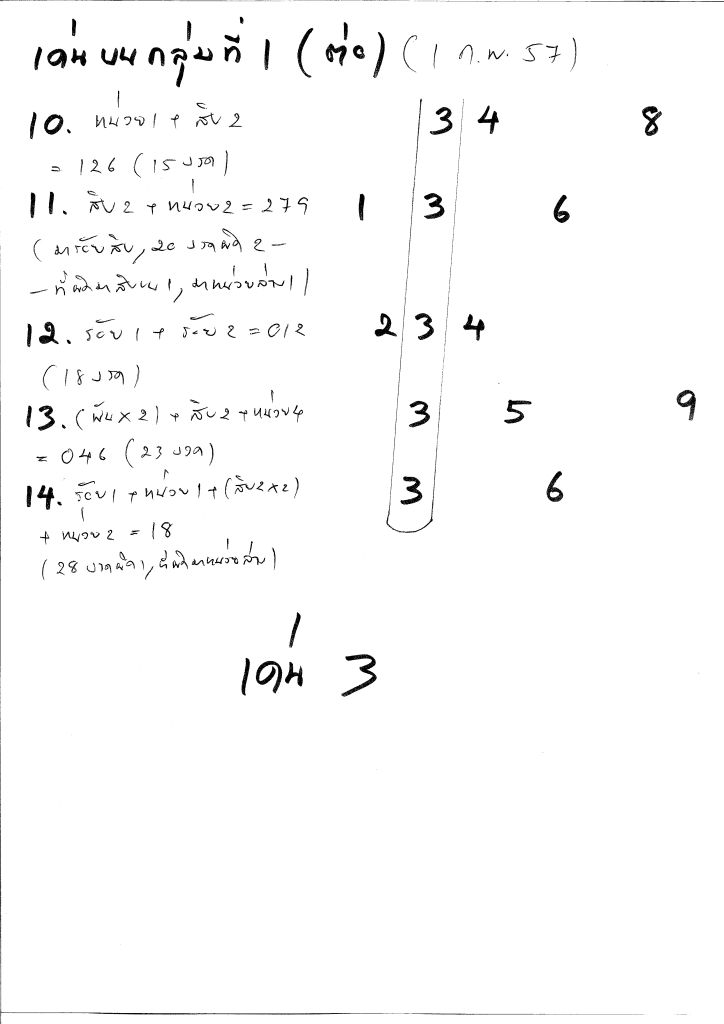 เด่นบนกลุ่มที่ 1 (ต่อ) (1 ก.พ. 57)
10. หน่วย1 + สิบ2 3 4 8
= 126 (15 งวด)
11. สิบ2 + หน่วย2 = 279 1 3 6
(มาร้อยสิบ, 20 งวดผิด 2 -
- ที่ผิดมาสิบบน1, มาหน่วยล่าง1)
12. ร้อย1 + ร้อย2 = 012 2 3 4
(18 งวด)
13. (พัน×2) + สิบ2 + หน่วย4 3 5 9
= 046 (23 งวด)
14. ร้อย1 + หน่วย1 + (สิบ2×2) 3 6
+ หน่วย2 = 18
(28 งวดผิด1, ที่ผิดมาหน่วยล่าง)
เด่น 3